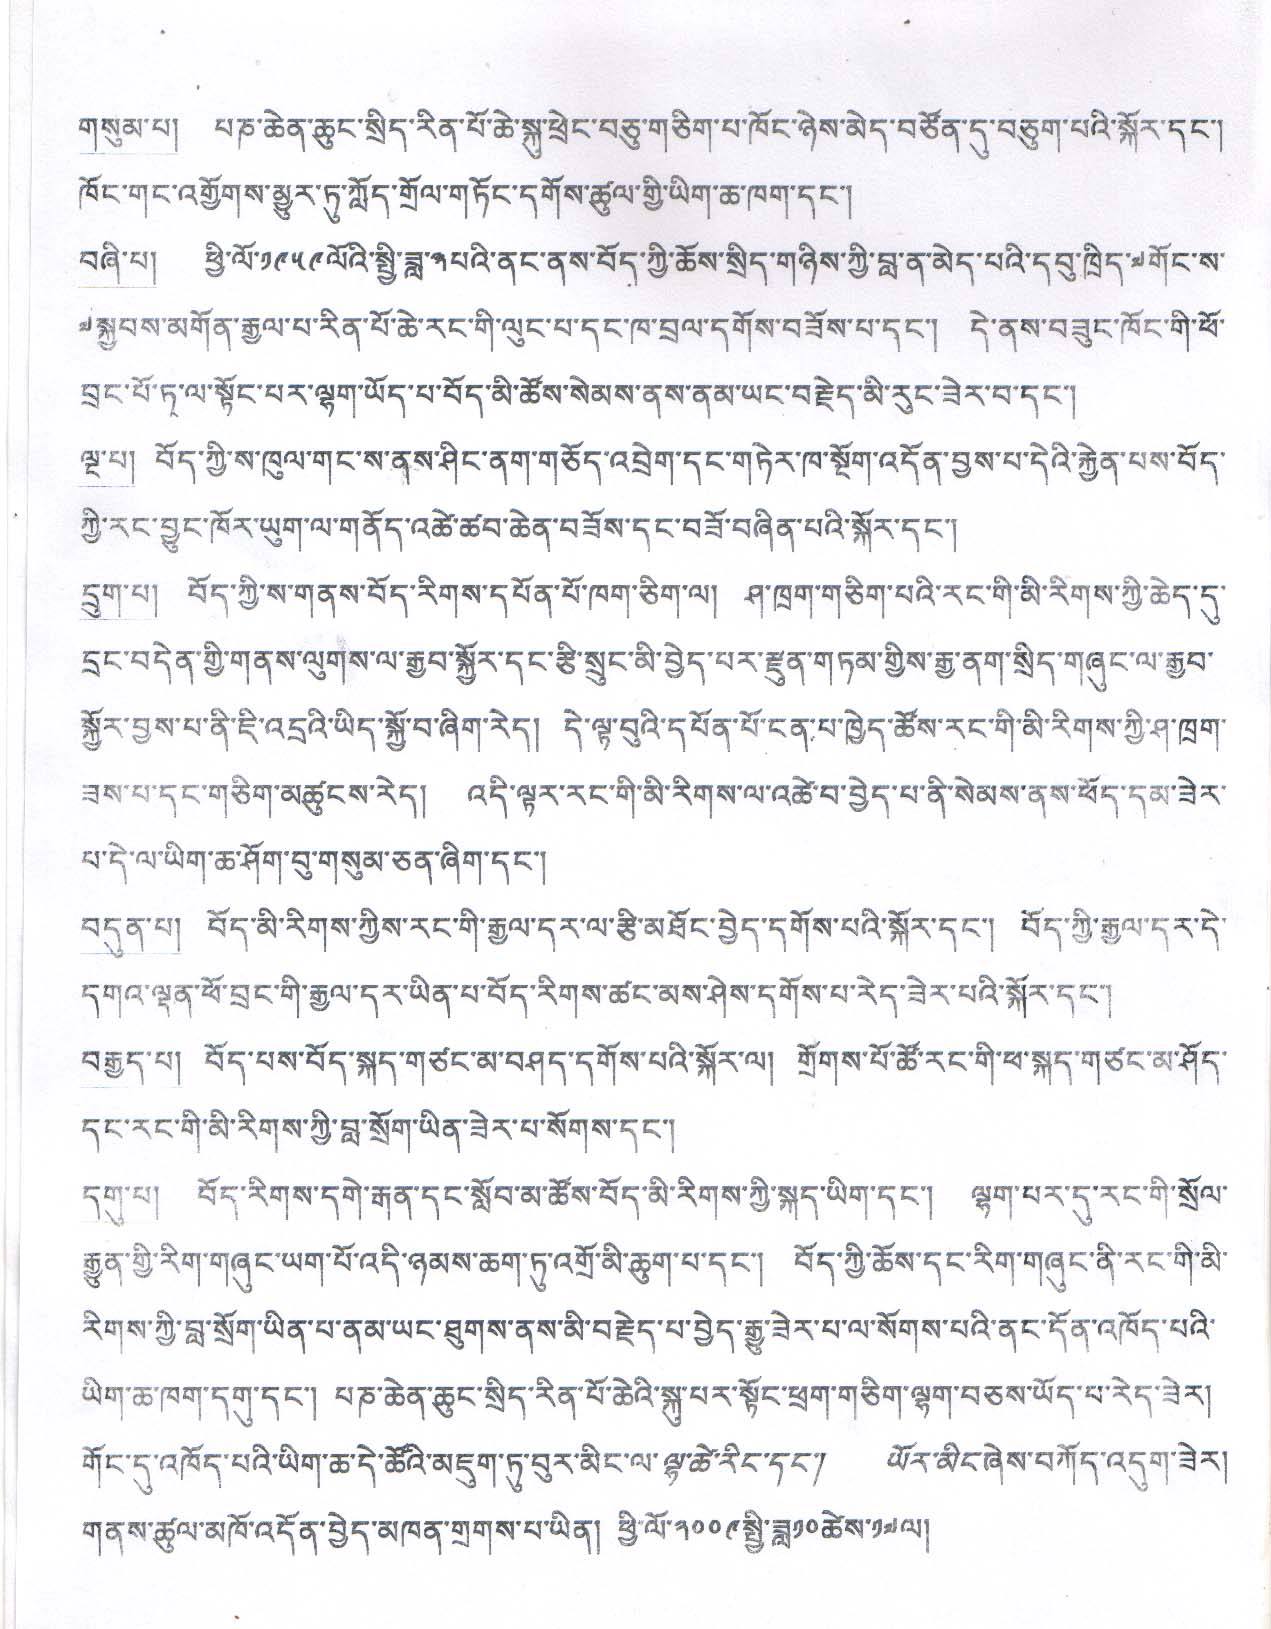 གསུམ་པ། པཎ་ཆེན་ཆུང་སྲིད་རིན་པོ་ཆེ་སྐུ་ཕྲེང་བཅུ་གཅིག་པ་ཁོང་ཉེས་མེད་བཙོན་དུ་བཅུག་པའི་སྐོར་དང་།
ཁོང་གང་འགྱོགས་མྱུར་ཏུ་ཀློད་གྲོལ་གཏོང་དགོས་ཚུལ་གྱི་ཡིག་ཆ་ཁག་དང་།
བཞི་པ། ཕྱི་ལོ་༡༩༥༩ལོའི་སྤྱི་ཟླ་༣པའི་ནང་ནས་བོད་ཀྱི་ཆོས་སྲིད་གཉིས་ཀྱི་བླ་ན་མེད་པའི་དབུ་ཁྲིད་༧གོང་ས་
༧སྐྱབས་མགོན་རྒྱལ་པ་རིན་པོ་ཆེ་རང་གི་ལུང་པ་དང་ཁ་བྲལ་དགོས་བཟོས་པ་དང་། དེ་ནས་བཟུང་ཁོང་གི་ཕོ་
བྲང་པོ་ཏ་ལ་སྟོང་པར་ལྷག་ཡོད་པ་བོད་མི་ཚོས་སེམས་ནས་ནམ་ཡང་བརྗེད་མི་རུང་ཟེར་བ་དང་།
ལྔ་པ། བོད་ཀྱི་ས་ཁུལ་གང་ས་ནས་ཤིང་ནག་གཅོད་འབྲེག་དང་གཏེར་ཁ་སྔོག་འདོན་བྱས་པ་དེའི་རྐྱེན་པས་བོད་
ཀྱི་རང་བྱུང་ཁོར་ཡུག་ལ་གནོད་འཚེ་ཚབ་ཆེན་བཟོས་དང་བཟོ་བཞིན་པའི་སྐོར་དང་།
དྲུག་པ། བོད་ཀྱི་ས་གནས་བོད་རིགས་དཔོན་པོ་ཁག་ཅིག་ལ། ཤ་ཁྲག་གཅིག་པའི་རང་གི་མི་རིགས་ཀྱི་ཆེད་དུ་
དྲང་བདེན་གྱི་གནས་ལུགས་ལ་རྒྱབ་སྐྱོར་དང་རྩི་སྲུང་མི་བྱེད་པར་རྫུན་གཏམ་གྱིས་རྒྱ་ནག་སྲིད་གཞུང་ལ་རྒྱབ་
སྐྱོར་བྱས་པ་ནི་ཇི་འདྲའི་ཡིད་སྐྱོ་བ་ཞིག་རེད། དེ་ལྟ་བུའི་དཔོན་པོ་ངན་པ་ཁྱེད་ཚོས་རང་གི་མི་རིགས་ཀྱི་ཤ་ཁྲག་
ཟས་པ་དང་གཅིག་མཚུངས་རེད། འདི་ལྟར་རང་གི་མི་རིགས་ལ་འཚེ་བ་བྱེད་པ་ནི་སེམས་ནས་ཕོད་དམ་ཟེར་
པ་དེ་ལ་ཡིག་ཆ་ཤོག་བུ་གསུམ་ཅན་ཞིག་དང་།
བདུན་པ། བོད་མི་རིགས་ཀྱིས་རང་གི་རྒྱལ་དར་ལ་རྩི་མཐོང་བྱེད་དགོས་པའི་སྐོར་དང་། བོད་ཀྱི་རྒྱལ་དར་དེ་
དགའ་ལྡན་ཕོ་བྲང་གི་རྒྱལ་དར་ཡིན་པ་བོད་རིགས་ཚང་མས་ཤེས་དགོས་པ་རེད་ཟེར་པའི་སྐོར་དང་།
བརྒྱད་པ། བོད་པས་བོད་སྐད་གཙང་མ་བཤད་དགོས་པའི་སྐོར་ལ། གྲོགས་པོ་ཚོ་རང་གི་ཕ་སྐད་གཙང་མ་ཤོད་
དང་རང་གི་མི་རིགས་ཀྱི་བླ་སྲོག་ཡིན་ཟེར་པ་སོགས་དང་།
དགུ་པ། བོད་རིགས་དགེ་རྒན་དང་སློབ་མ་ཚོས་བོད་མི་རིགས་ཀྱི་སྐད་ཡིག་དང་། ལྷག་པར་དུ་རང་གི་སྲོལ་
རྒྱུན་གྱི་རིག་གཞུང་ཡག་པོ་འདི་ཉམས་ཆག་ཏུ་འགྲོ་མི་ཆུག་པ་དང་། བོད་ཀྱི་ཆོས་དང་རིག་གཞུང་ནི་རང་གི་མི་
རིགས་ཀྱི་བླ་སྲོག་ཡིན་པ་ནམ་ཡང་ཐུགས་ནས་མི་བརྗེད་པ་བྱེད་རྒྱུ་ཟེར་པ་ལ་སོགས་པའི་ནང་དོན་འཁོད་པའི་
ཡིག་ཆ་ཁག་དགུ་དང་། པཎ་ཆེན་ཆུང་སྲིད་རིན་པོ་ཆེའི་སྐུ་པར་སྟོང་ཕྲག་གཅིག་ལྷག་བཅས་ཡོད་པ་རེད་ཟེར།
གོང་དུ་འཁོད་པའི་ཡིག་ཆ་དེ་ཚོའི་མཇུག་ཏུ་བུར་མིང་ལ་ལྷ་ཚེ་རིང་དང་། ཡོར་མིང་ཞེས་བཀོད་འདུག་ཟེར།
གནས་ཚུལ་མཁོ་འདོན་བྱེད་མཁན་གྲགས་པ་ཡིན། ཕྱི་ལོ་༢༠༠༩སྤྱི་ཟླ༡༠ཚེས་༡༧ལ།